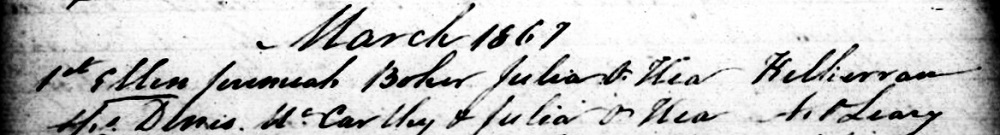 March 1867
1st Ellen Jeremiah Boher Julia O Shea Killierran
Sps Denis Mc Carthy & Julia O Shea A O Leary